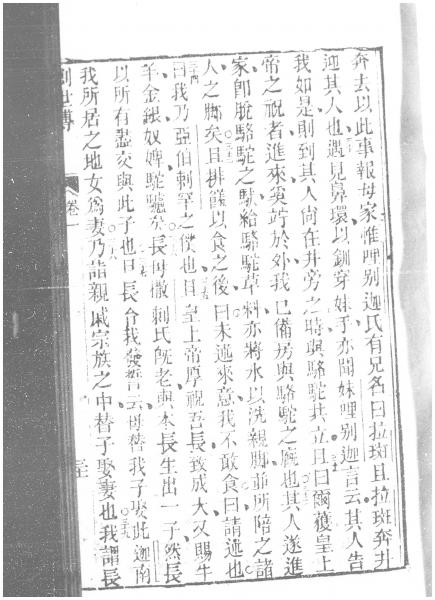 奔去以此事報母家惟哩别迦氏有兄名曰拉班且拉班奔井
迎其人也遇見鼻環以釧穿妹手亦聞妹哩别迦言云其人告
我如是則到其人尚在井旁之時與駱駝共立且曰爾獲皇上
帝之祝者進來奚竚於外我已備房與駱駝之廄也其人遂進
家即脫駱駝之馱給駱駝草料亦將水以洗親脚並所陪之諸
人之脚矣且排饌以食之後曰未述來意我不敢食曰請述也
曰我乃亞伯剌罕之僕也且皇上帝厚祝吾長致成大又賜牛
羊金銀奴婢駝驢矣長母撒剌氏既老與本長生出一子然長
以所有盡交與此子也曰長令我發誓云毋替我子娶此迦南
我所居之地女為妻乃詣親戚宗族之中替子娶妻也我謂長
創世傳 卷一